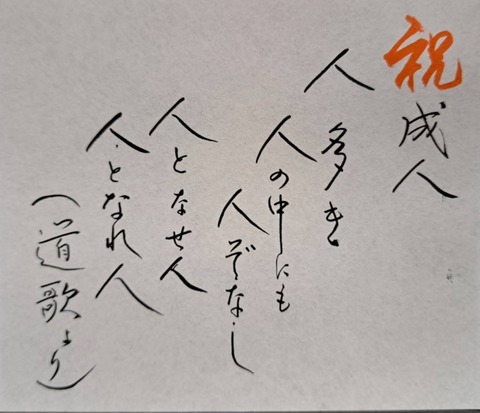 祝成人
人多き
人の中にも
人ぞなし
人となせ人
人となれ人
(道歌より)